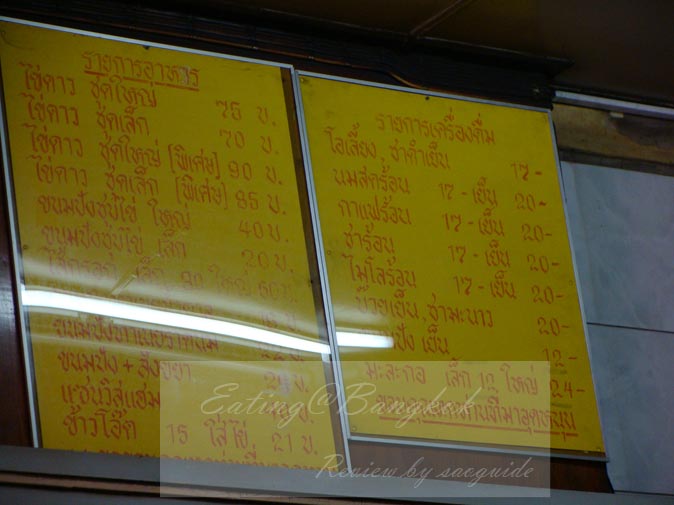 รายการอาหาร
ไข่ดาว ชุดใหญ่ 75 บ.
ไข่ดาว ชุดเล็ก 70 บ.
ไข่ดาว ชุดใหญ่ [พิเศษ] 90 บ.
ไข่ดาว ชุดเล็ก [พิเศษ] 85 บ.
ขนมปังชุบไข่ ใหญ่ 40 บ.
ขนมปังชุบไข่ เล็ก 20 บ.
ไส้กรอก เล็ก ใหญ่
ขนมปัง + สังขยา
แซนวิสแฮม
ข้าวโอ๊ต 15 ใส่ไข่ 21 บ.
รายการเครื่องดื่ม
โอเลี้ยง, ชาดำเย็น 17-
นมสดร้อน 17 - เย็น 20-
กาแฟร้อน 17 - เย็น 20-
ชาร้อน 17 - เย็น 20-
ไมโลร้อน 17 - เย็น 20-
บ๊วยเย็น, ชามะนาว 20-
เย็น 12-
มะละกอ เล็ก 12 ใหญ่ 24-
ขอบคุณทุกท่านที่มาอุดหนุน
Eating@Bangkok
Review by saoguide